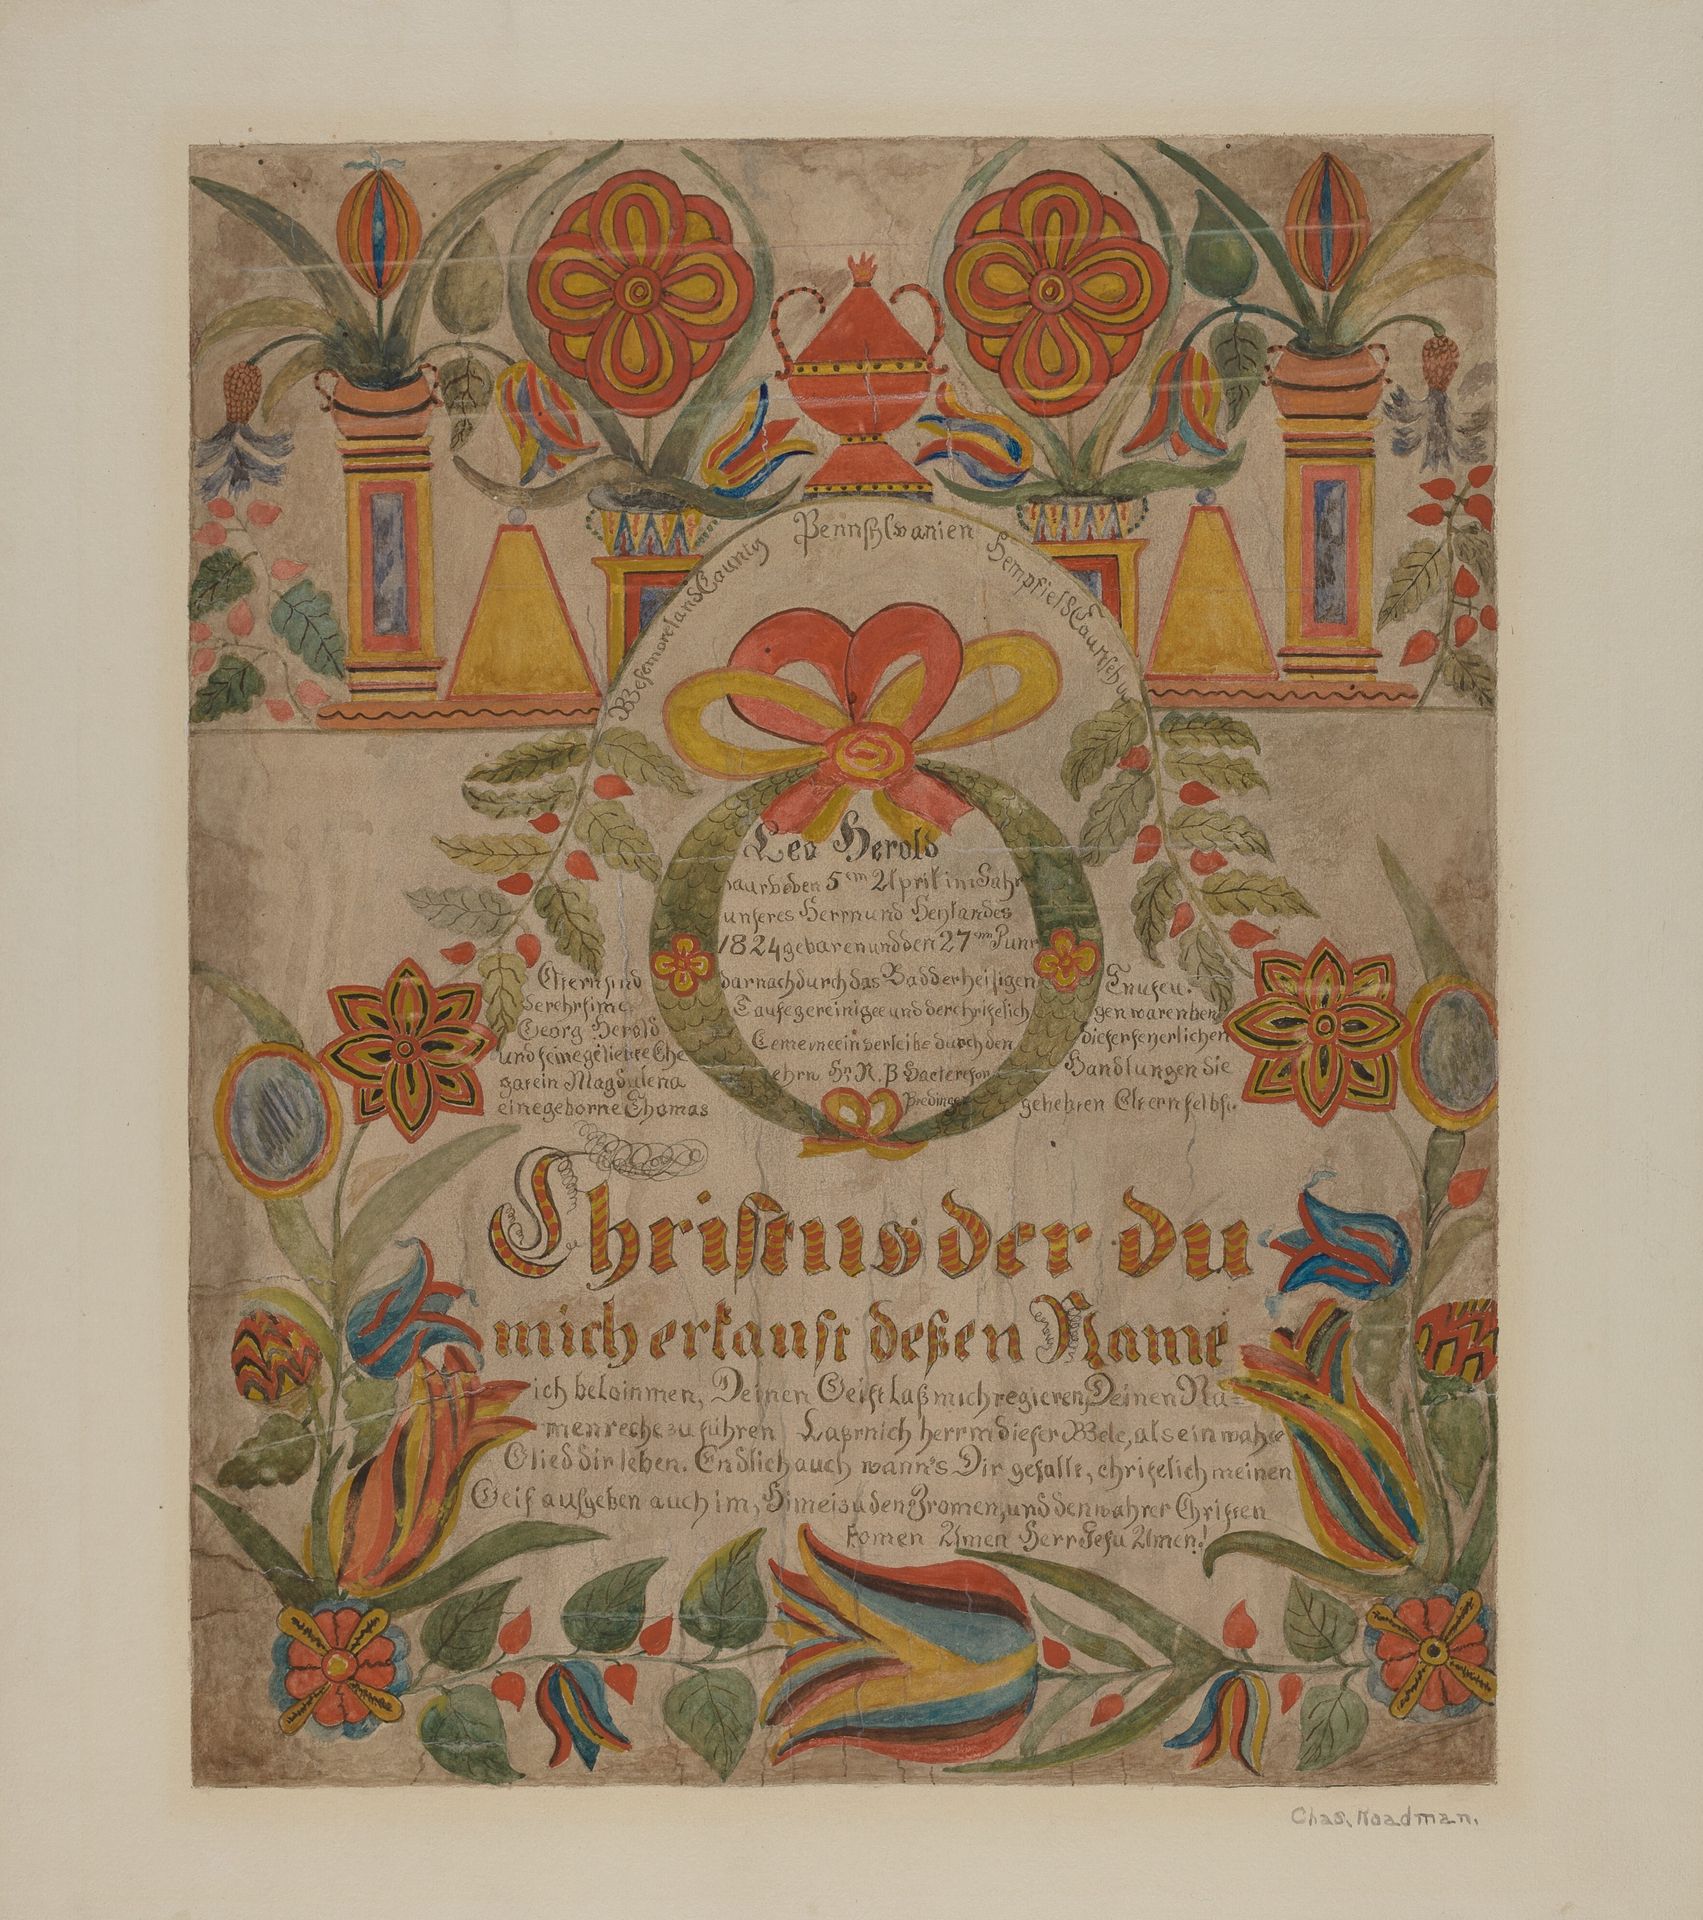 Westmoreland Caunty Pennsylvanien Hempfield Taunschip
Leo Herold
wurde den 5em April im Jahr
unseres Herrn und Heylandes
1824 gebaren und den 27em Juni
darnach durch das Bad der heiligen
Taufe gereiniget und der christlich
Gemeine einverleibt durch den
ehrn Hr. N. P. Hacke
Prediger
Eltern sind
der ehrsame
Georg Herold
und seine geliebte Ehe
gatein Magdalena
eine geborne Thomas
Taufzeu:
gen waren ben
dieser feyerlichen
Handlungen die
geehrten Eltern selbst.
Christus der du
mich erkauft deßen Name
ich bekommen, Deinen Geist Laß mich regieren, Deinen Na=
men reche zu führen Laß mich herr in dieser Welt, als ein wahre
Glied dir leben. Endlich auch wann's Dir gefallt, christlich meinen
Geis aufgeben auch im, Himel zu den Fromen, und den wahrer Christen
komen Amen Herr Jesu Amen.!
Chas. Roadman.